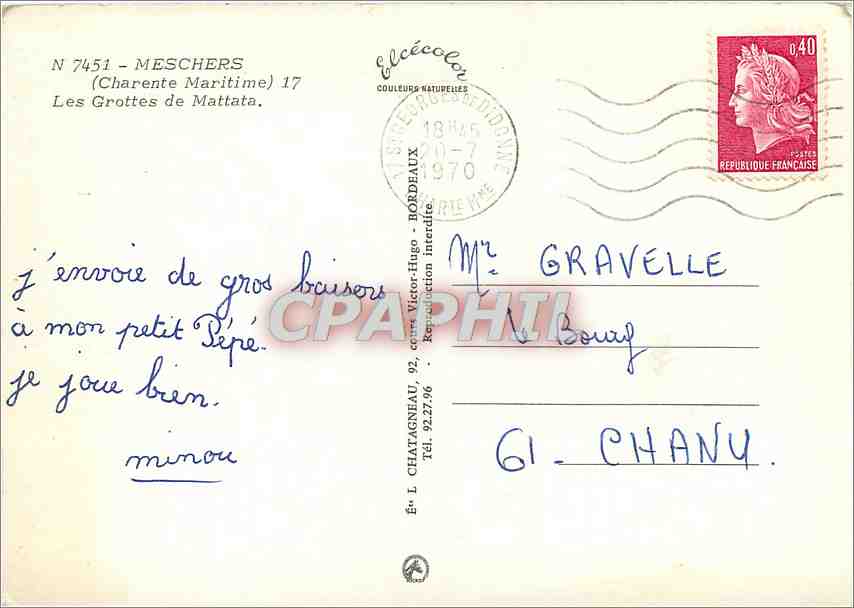 N 7451 - MESCHERS
(Charente Maritime) 17
Les Grottes de Mattata.
Elcécolor
COULEURS NATURELLES
17 ST GEORGES DE DIDONNE
18H45
20-7
1970
CHARTE MME
0,40
POSTES
REPUBLIQUE FRANÇAISE
j'envoie de gros baisers
à mon petit Pépé.
je joue bien.
minou
Éts L CHATAGNEAU, 92, cours Victor-Hugo - BORDEAUX
Tél. 92.27.96 - Reproduction interdite
Mr GRAVELLE
le Bourg
61 - CHANU.
CPAPHIL